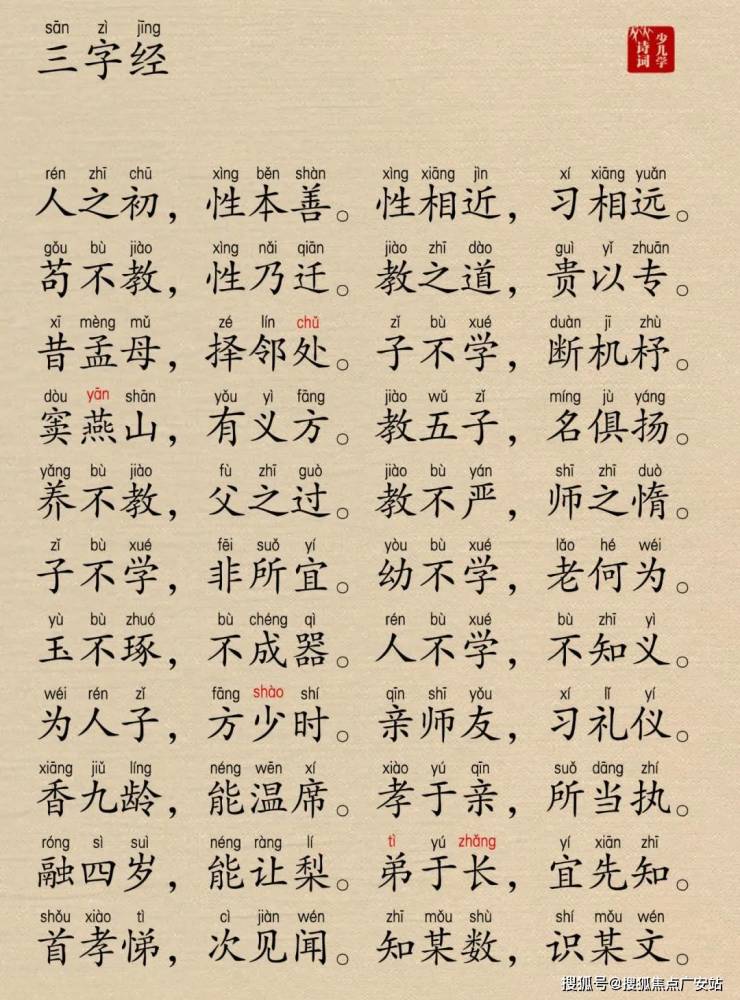 sān zì jīng
三字经
少儿学
诗词
rén zhī chū xìng běn shàn xìng xiāng jìn xí xiāng yuǎn
人之初，性本善。性相近，习相远。
gǒu bù jiào xìng nǎi qiān jiào zhī dào guì yǐ zhuān
苟不教，性乃迁。教之道，贵以专。
xī mèng mǔ zé lín chǔ zǐ bù xué duàn jī zhù
昔孟母，择邻处。子不学，断机杼。
dòu yān shān yǒu yì fāng jiào wǔ zǐ míng jù yáng
窦燕山，有义方。教五子，名俱扬。
yǎng bù jiào fù zhī guò jiào bù yán shī zhī duò
养不教，父之过。教不严，师之惰。
zǐ bù xué fēi suǒ yí yòu bù xué lǎo hé wéi
子不学，非所宜。幼不学，老何为。
yù bù zhuó bù chéng qì rén bù xué bù zhī yì
玉不琢，不成器。人不学，不知义。
wéi rén zǐ fāng shào shí qīn shī yǒu xí lǐ yí
为人子，方少时。亲师友，习礼仪。
xiāng jiǔ líng néng wēn xí xiào yú qīn suǒ dāng zhí
香九龄，能温席。孝于亲，所当执。
róng sì suì néng ràng lí tì yú zhǎng yí xiān zhī
融四岁，能让梨。弟于长，宜先知。
shǒu xiào tì cì jiàn wén zhī mǒu shù shí mǒu wén
首孝悌，次见闻。知某数，识某文。
搜狐号@搜狐焦点广安站